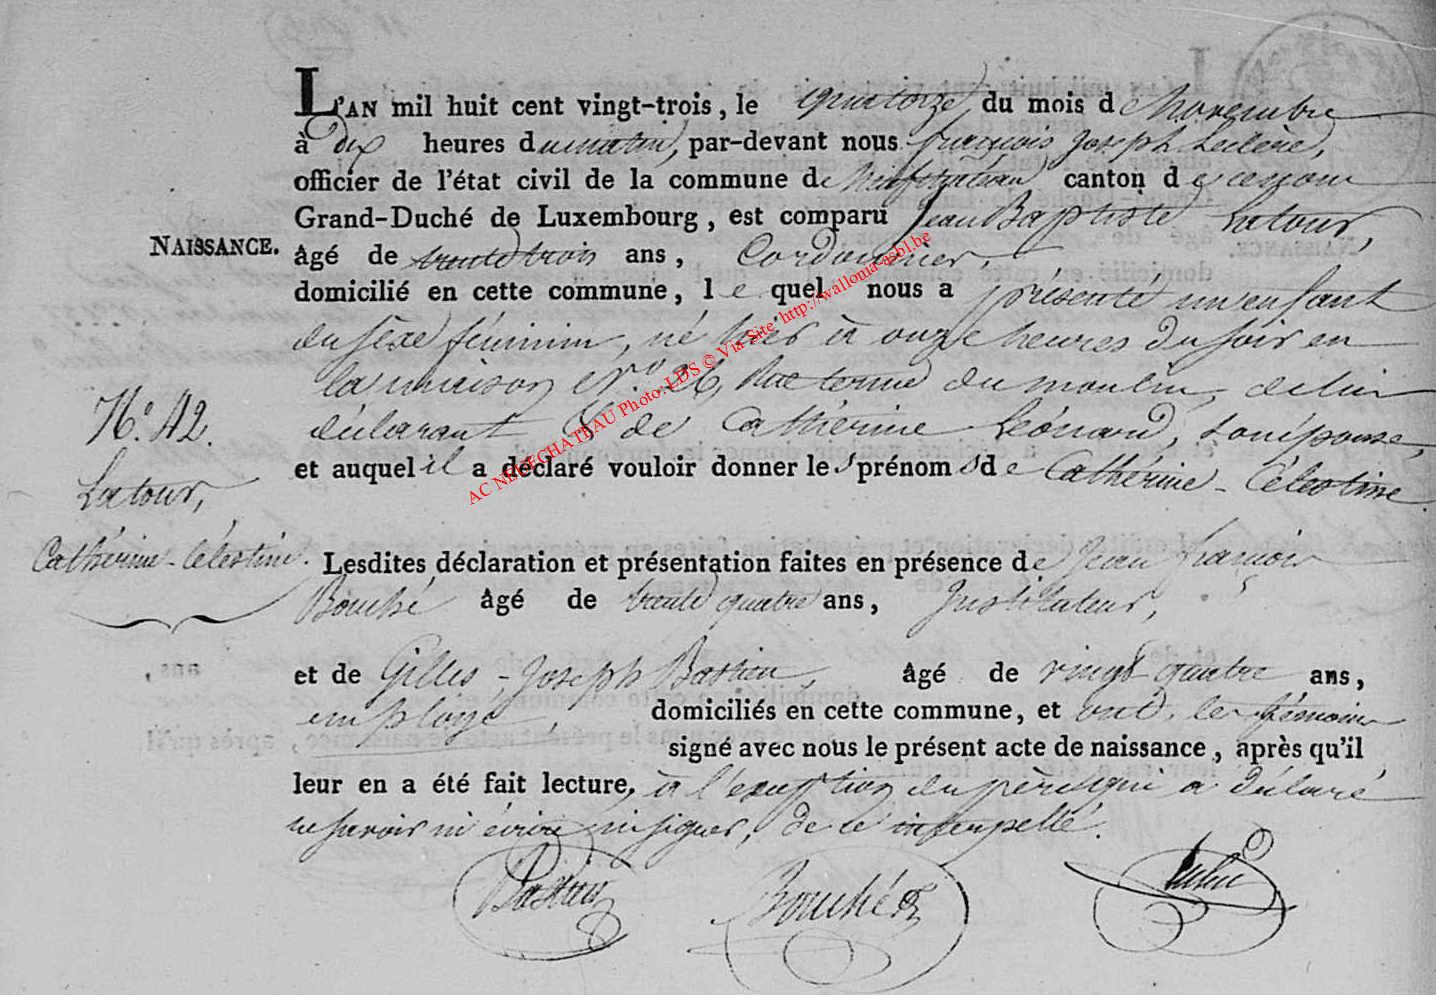 L'AN mil huit cent vingt-trois, le quatorze du mois de Novembre
à dix heures du matin, par-devant nous françois Joseph Leclère,
officier de l'état civil de la commune de Neufchateau canton de ce nom
Grand-Duché de Luxembourg, est comparu Jean Baptiste Latour,
NAISSANCE.
âgé de trente trois ans, Cordonnier,
domicilié en cette commune, le quel nous a présenté un enfant
du sexe féminin, né hier à onze heures du soir en
la maison N.° 26, Rue du moulin, de lui
déclarant & de Cathérine Léonard, son epouse,
et auquel il a déclaré vouloir donner les prénoms de Cathérine-Célestine
N.° 42.
Latour,
Cathérine-Célestine.
Lesdites déclaration et présentation faites en présence de Jean françois
Bouché âgé de trente quatre ans, Instituteur,
et de Gilles-Joseph Bastien, âgé de vingt quatre ans,
employé, domiciliés en cette commune, et ont les témoins
signé avec nous le présent acte de naissance, après qu'il
leur en a été fait lecture, à l'exception du père qui a déclaré
ne savoir ni écrire ni signer, de ce interpellé.
Bastien Bouché
AC NEUFCHATEAU Photo: LDS © Via Site http://wallonia-asbl.be